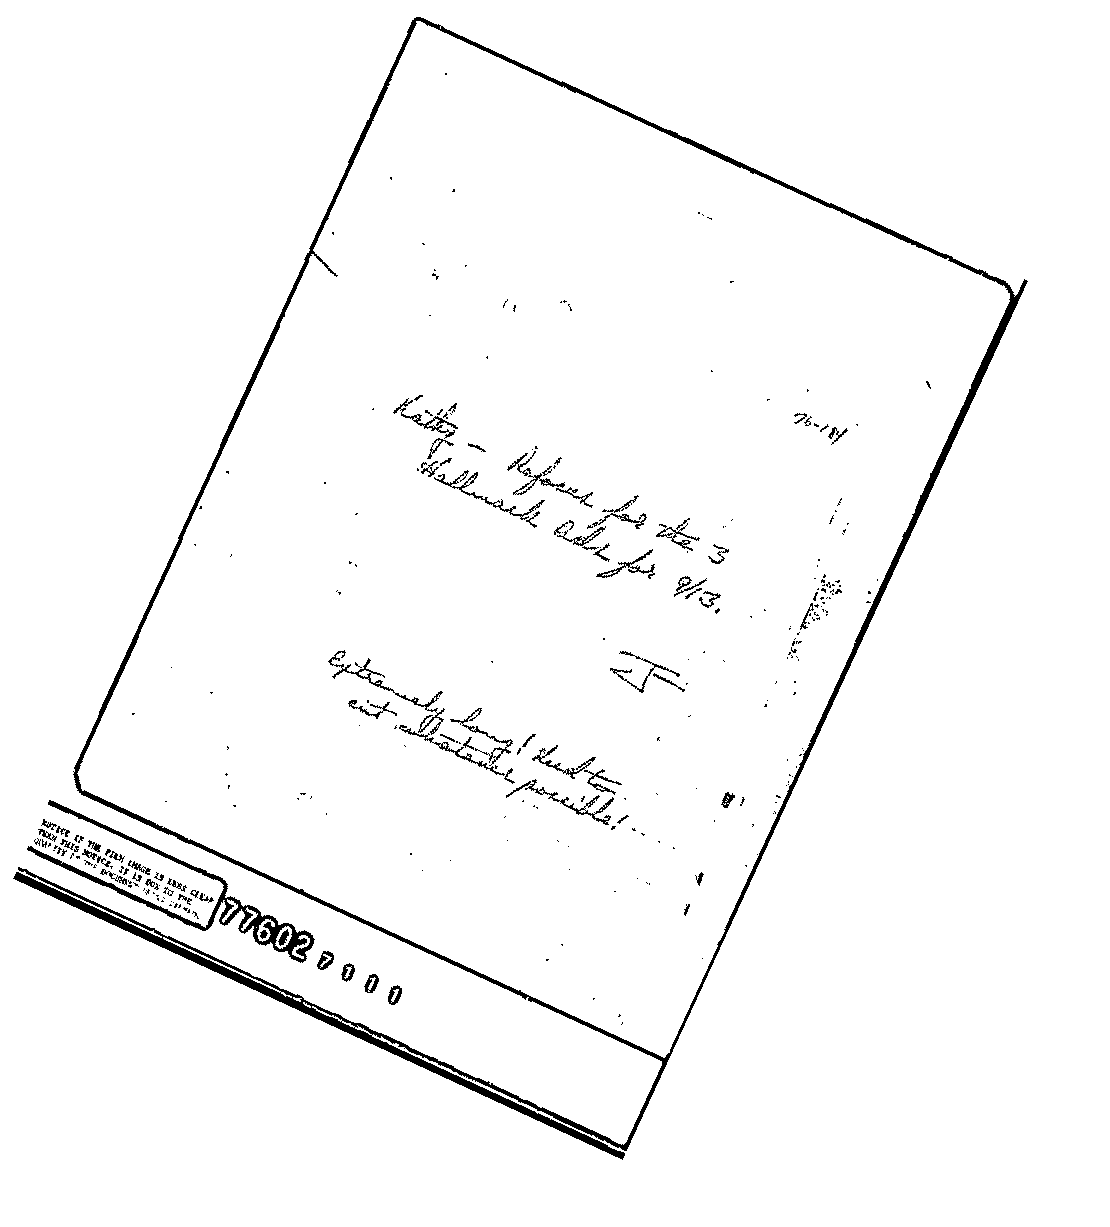 76-184
Kathy – Refocus for the 3
Hallmark Ads for 9/13.
JF
Extremely long! Need to
cut whatever possible!
NOTICE IF THE FILM IMAGE IS LESS CLEAR
THAN THIS NOTICE, IT IS DUE TO THE
QUALITY OF THE DOCUMENT
77602 7111